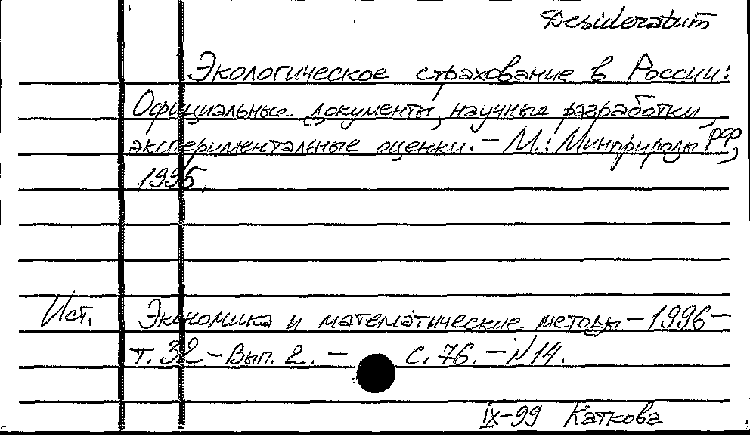 Desideratum
Экологическое страхование в России:
Официальные документы, научные разработки,
экспериментальные оценки. – М.: Минприроды РФ,
1995.
Ист. Экономика и математические методы – 1996 –
Т. 32 – Вып. 2. – С. 76. – N 14.
IX-99 Каткова